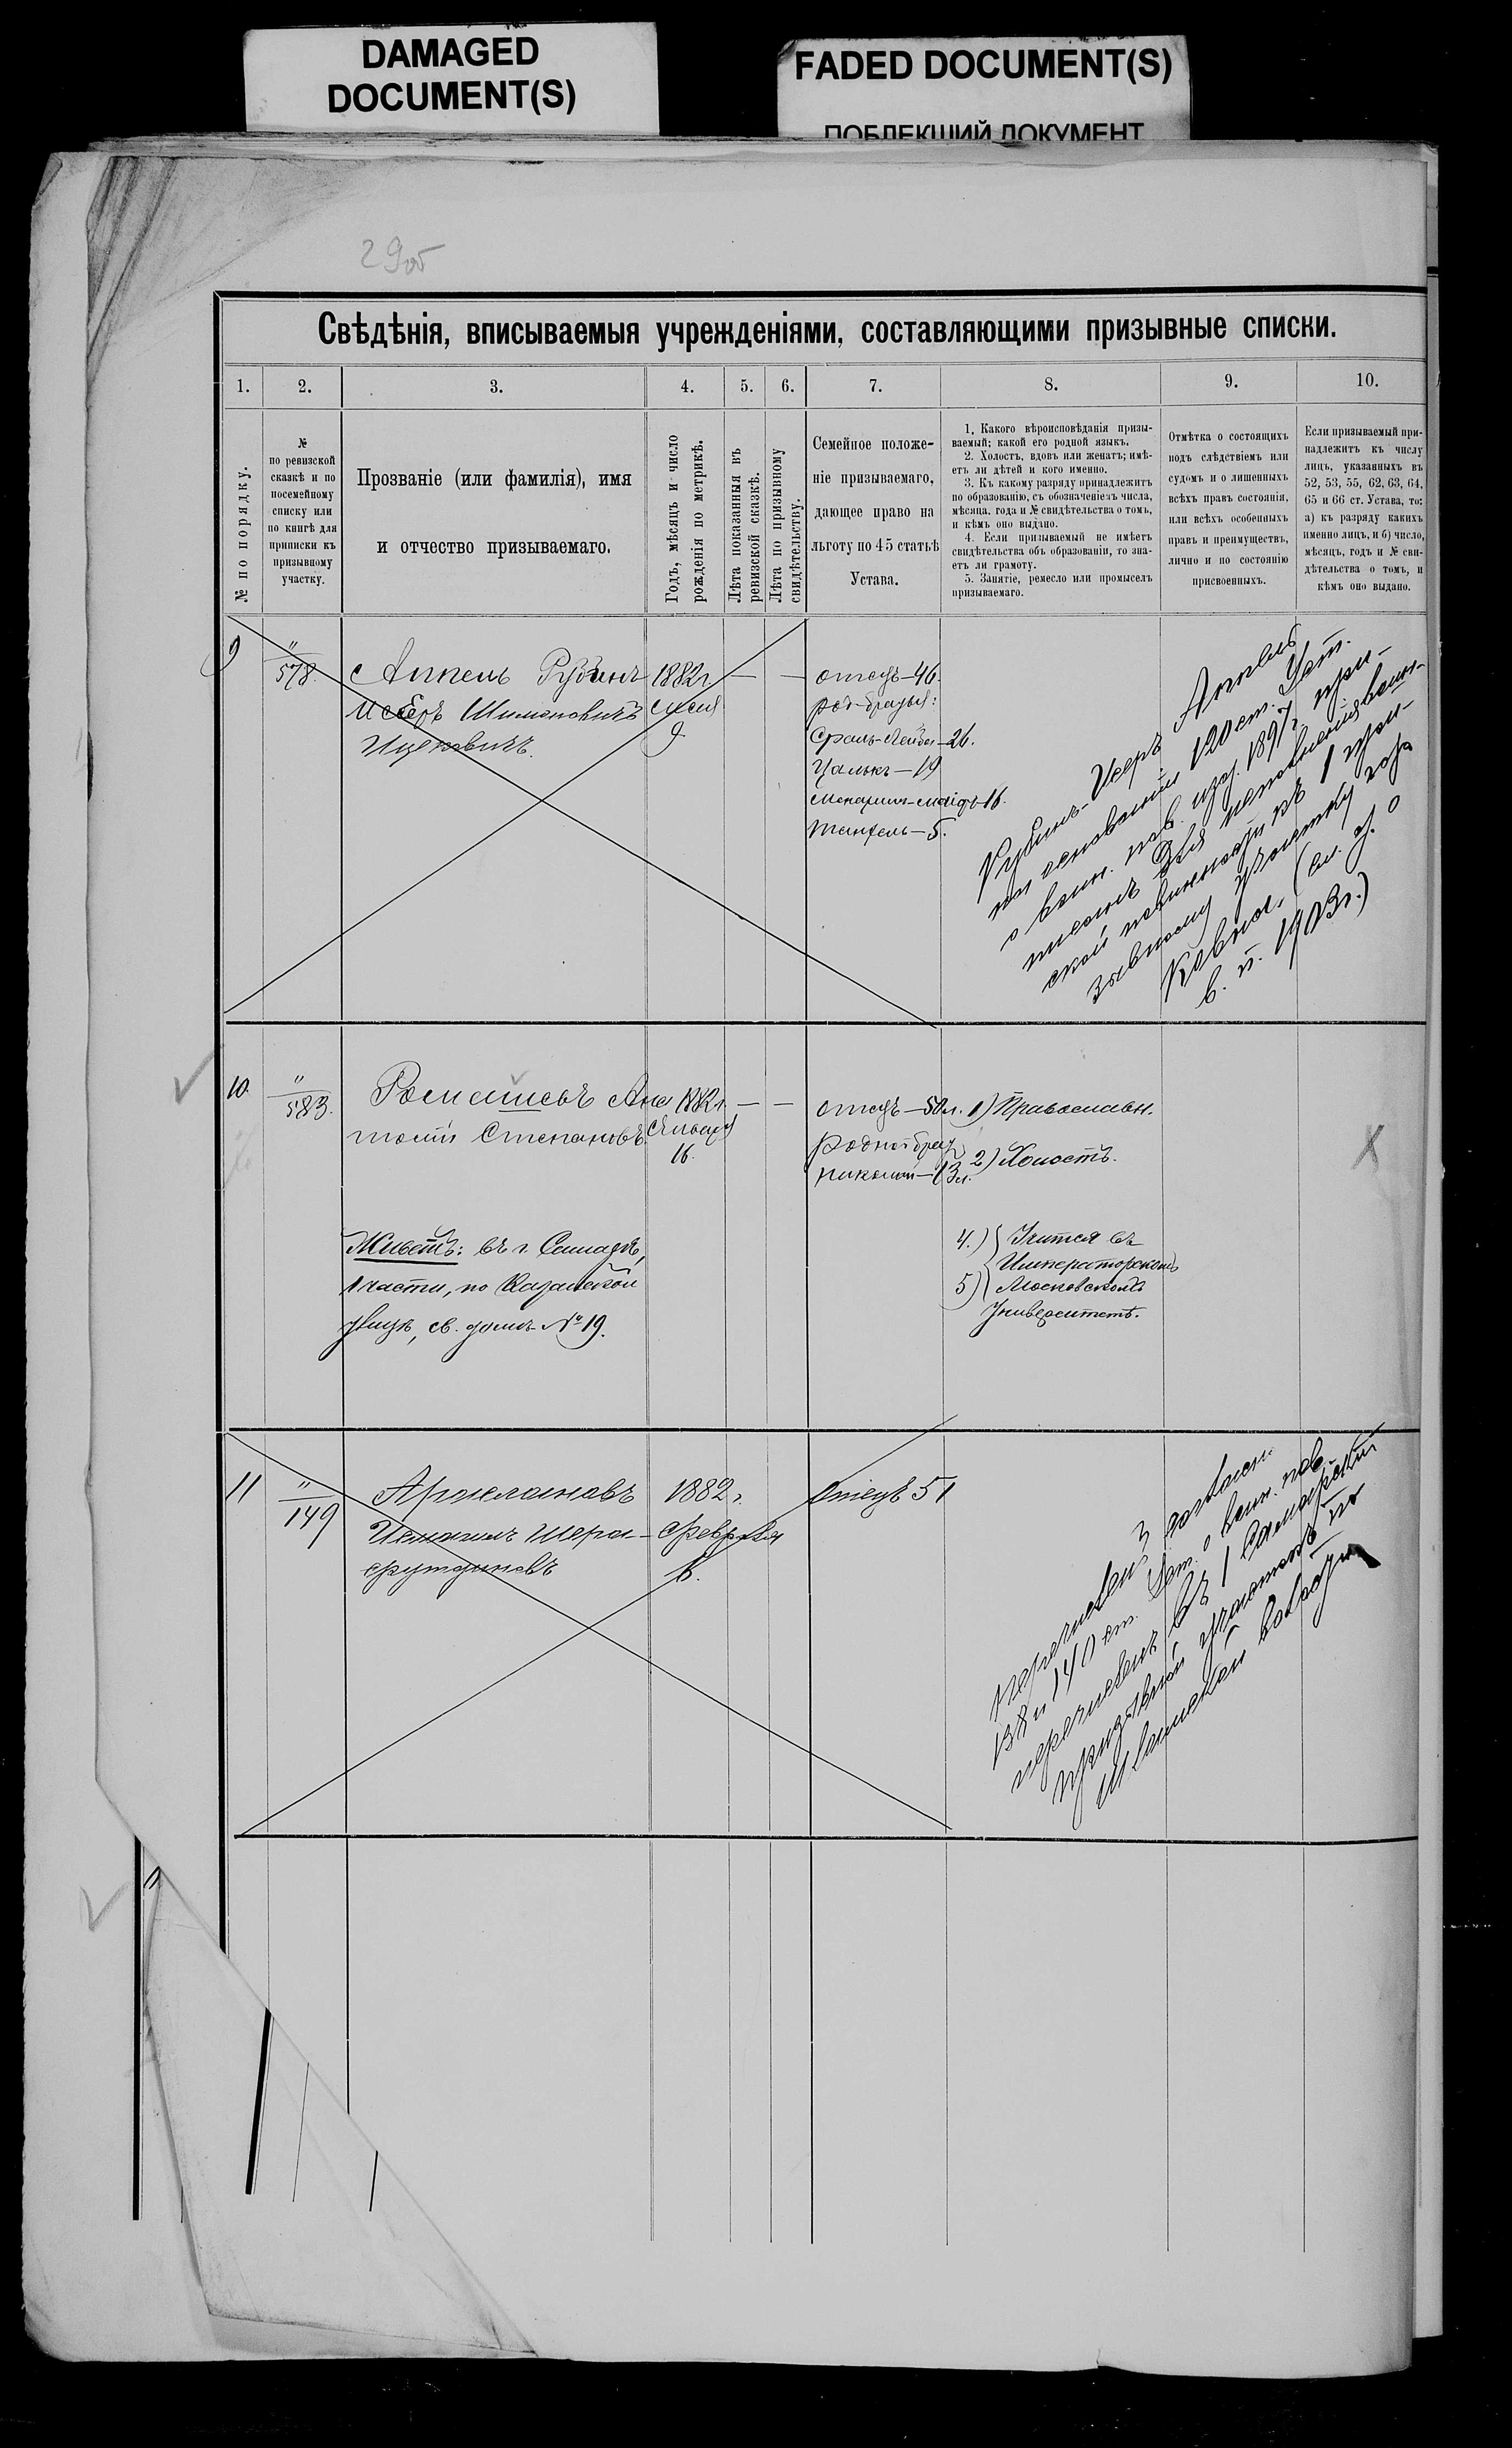 DAMAGED
DOCUMENT(S)
FADED DOCUMENT(S)
ПОБЛЕКШИЙ ДОКУМЕНТ
29об
Свѣдѣнія, вписываемыя учрежденіями, составляющими призывные списки.
1. 2. 3. 4. 5. 6. 7. 8. 9. 10.
№ по порядку.
№
по ревизской
сказкѣ и по
посемейному
списку или
по книгѣ для
приписки къ
призывному
участку.
Прозваніе (или фамилія), имя
и отчество призываемаго.
Годъ, мѣсяцъ и число
рожденія по метрикѣ.
Лѣта показанныя въ
ревизской сказкѣ.
Лѣта по призывному
свидѣтельству.
Семейное положе-
ніе призываемаго,
дающее право на
льготу по 45 статьѣ
Устава.
1. Какого вѣроисповѣданія призы-
ваемый; какой его родной языкъ.
2. Холостъ, вдовъ или женатъ; имѣ-
етъ ли дѣтей и кого именно.
3. Къ какому разряду принадлежитъ
по образованію, съ обозначеніемъ числа,
мѣсяца, года и № свидѣтельства о томъ,
и кѣмъ оно выдано.
4. Если призываемый не имѣетъ
свидѣтельства объ образованіи, то зна-
етъ ли грамоту.
5. Занятіе, ремесло или промыселъ
призываемаго.
Отмѣтка о состоящихъ
подъ слѣдствіемъ или
судомъ и о лишенныхъ
всѣхъ правъ состоянія,
или всѣхъ особенныхъ
правъ и преимуществъ,
лично и по состоянію
присвоенныхъ.
Если призываемый при-
надлежитъ къ числу
лицъ, указанныхъ въ
52, 53, 55, 62, 63, 64,
65 и 66 ст. Устава, то:
а) къ разряду какихъ
именно лицъ, и б) число,
мѣсяцъ, годъ и № сви-
дѣтельства о томъ, и
кѣмъ оно выдано.
9
"
578.
Аппель Рубинъ
Исеръ Шимоновичъ
Ицковичъ.
1882 г.
9
отецъ — 46.
род. братья:
Сроль-Лейба — 26.
Цалькъ — 19
16.
5.
Рубинъ-Исеръ Аппель
на основаніи 120 ст. Уст.
о воин. пов. изд. 1897 г. при-
писанъ для исполненія воин-
ской повинности къ 1 при-
зывному участку гор.
Ковна. (см. д. о
в. п. 1903 г.)
10.
"
583.
Ана-
толій Степановъ.
1882 г.
Января
16.
отецъ — 50 л.
родной братъ
Николай — 13 л.
1) Православн.
2) Холостъ.
4.) Учится въ
Императорскомъ
5) Московскомъ
Университетѣ.
Живетъ: въ г. Самарѣ,
1 части, по Казанской
улицѣ, св. домъ № 19.
11
"
149
Арслановъ
Исмагилъ Шера-
футдиновъ
1882 г.
Февраля
отецъ 51
138 и 140 ст. Уст. о воин. пов.
перечисленъ въ 1 Самарскій
призывной участокъ по
волости